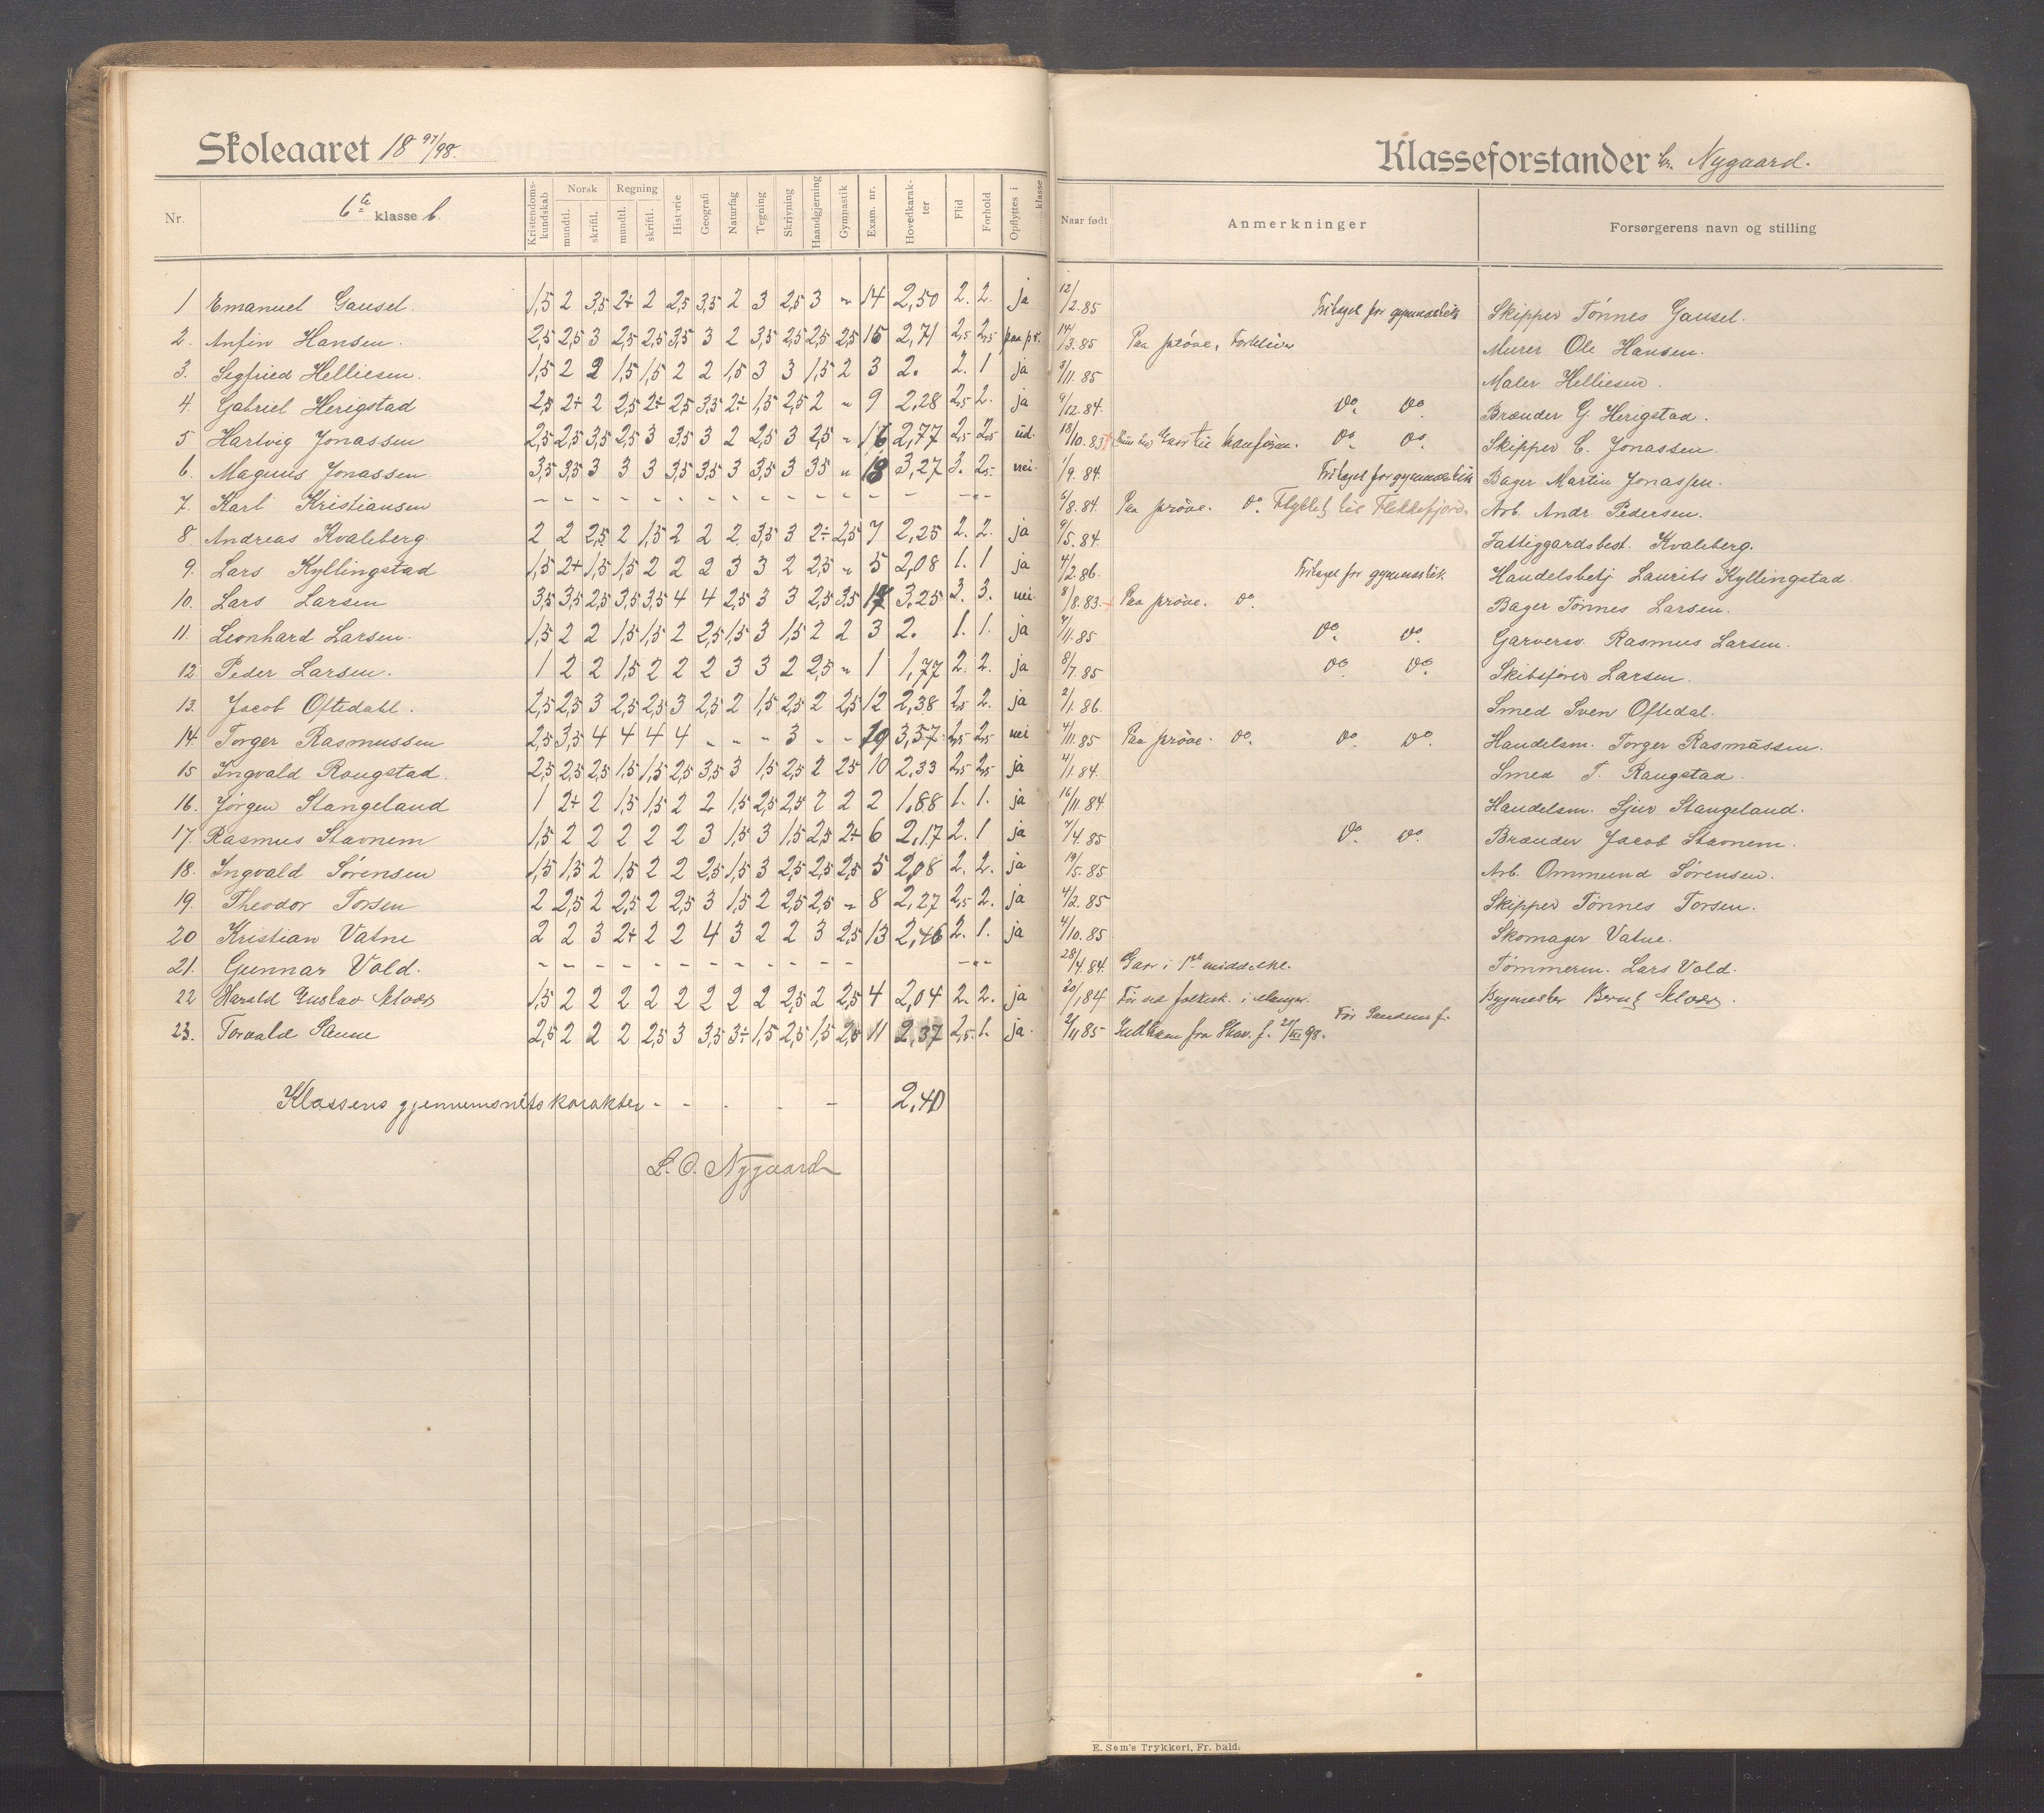 Skoleaaret 18 97/98.
Nr. 6te klasse b. Kristendoms-kundskab Norsk mundtl. skriftl. Regning mundtl. skriftl. Historie Geografi Naturfag Tegning Skrivning Haandgjerning Gymnastik Exam. nr. Hovedkarakter Flid Forhold Opflyttes i klasse
1 Emanuel Gausel. 1,5 2 3,5 2+ 2 2,5 3,5 2 3 2,5 3 " 14 2,50 2. 2. ja
2. Anfin Hansen. 2,5 2,5 3 2,5 2,5 3,5 3 2 3,5 2,5 2,5 2,5 15 2,71 2,5 2,5 paa pr.
3. Sigfried Helliesen. 1,5 2 2 1,5 1,5 2 2 1,5 3 3 1,5 2 3 2. 2. 1 ja
4. Gabriel Herigstad 2,5 2+ 2 2,5 2+ 2,5 3,5 2÷ 1,5 2,5 2 " 9 2,28 2,5 2. ja
5 Hartvig Jonassen 2,5 2,5 3,5 2,5 3 3,5 3 2 2,5 3 2,5 " 16 2,77 2,5 2,5 ud.
6. Magnus Jonassen. 3,5 3,5 3 3 3 3,5 3,5 3 3,5 3 3,5 " 18 3,27 3. 2,5 nei.
7. Karl Kristiansen - - - - - - - - - - - - - - - " -
8. Andreas Kvaleberg. 2 2 2,5 2 1,5 2 2 2 3,5 3 2÷ 2,5 7 2,25 2. 2. ja
9. Lars Kyllingstad 1,5 2+ 1,5 1,5 2 2 2 3 3 2 2,5 " 5 2,08 1. 1 ja
10. Lars Larsen 3,5 3,5 2,5 3,5 3,5 4 4 2,5 3 3 2,5 3,5 17 3,25 3. 3. nei.
11. Leonhard Larsen. 1,5 2 2 1,5 1,5 2 2,5 1,5 3 1,5 2 2 3 2. 1. 1. ja
12. Peder Larsen. 1 2 2 1,5 2 2 2 3 3 2 2,5 " 1 1,77 2. 2. ja
13. Jacob Oftedahl. 2,5 2,5 3 2,5 2,5 3 2,5 2 1,5 2,5 2 2,5 12 2,38 2,5 2. ja
14. Torger Rasmussen 2,5 3,5 4 4 4 4 " " " 3 " " 19 3,57 2,5 2,5 nei
15 Ingvald Raugstad. 2,5 2,5 2,5 1,5 1,5 2,5 3,5 3 1,5 2,5 2 2,5 10 2,33 2,5 2,5 ja
16. Jørgen Stangeland 1 2+ 2 1,5 1,5 2 2 1,5 2,5 2,5 2 2 2 1,88 1. 1. ja
17. Rasmus Stavnem 1,5 2 2 2 2 2 3 1,5 3 1,5 2,5 2÷ 6 2,17 2. 1 ja
18. Ingvald Sørensen 1,5 1,5 2 1,5 2 2 2,5 1,5 3 2,5 2,5 2,5 5 2,08 2. 2. ja
19. Theodor Torsen 2 2,5 2 2,5 2 2,5 3 1,5 2 2,5 2,5 " 8 2,27 2,5 2. ja
20 Kristian Vatne 2 2 3 2+ 2 2 4 3 2 2 3 2,5 13 2,46 2. 1. ja
21. Gunnar Vold. - - - - - - - - - - - - - " -
22 Harald Gustav 1,5 2 2 2 2 2 2 2 2 2,5 2 2,5 4 2,04 2. 2. ja
23. Torvald Sanne 2,5 2 2 2 2,5 3 3,5 3÷ 1,5 2,5 1,5 2,5 11 2,37 2,5. 1. ja
Klassens gjennemsnitskarakter - - - - - 2,40
L. O. Nygaard
Klasseforstander hr. Nygaard.
Naar født Anmerkninger Forsørgerens navn og stilling
12/2.85 Fritaget for gymnastik Skipper Tønnes Gausel.
14/3.85 Paa prøve, Murer Ole Hansen.
3/11.85 Maler Helliesen.
9/12.84. do. do. Brænder G. Herigstad.
18/10.83 do. do. Skipper C. Jonassen.
1/9.84. Fritaget for gymnastik Bager Martin Jonassen.
6/8.84. Paa prøve. do. Flyttet til Flekkefjord. Arb. Andr. Pedersen.
9/5.84. Fattiggardsbest. Kvaleberg.
4/2.86. Fritaget for gymnastik. Handelsbetj Laurits Kyllingstad.
8/8.83. Paa prøve. do. Bager Tønnes Larsen.
7/11.85 do. do. Garversv. Rasmus Larsen.
8/7.85 do. do. Skibsfører Larsen.
2/1.86. Smed Sven Oftedal.
4/11.85 Paa prøve. do. do. do. Handelsm. Torger Rasmussen.
4/1.84. Smed T. Raugstad.
16/11.84. Handelsm. Sjur Stangeland.
7/4.85 do. do. Brænder Jacob Stavnem.
19/5.85 Arb. Ommund Sørensen.
4/2.85 Skipper Tønnes Torsen.
4/10.85 Skomager Vatne.
28/4.84. Gaar i 1ste middelskl. Tømmerm. Lars Vold.
20/1 84 Før ved folkesk. i Bygmester
2/11 85 Indkom fra Stav. f. 98. Før Sandnes f.
E. Søm's Trykkeri, Fr. hald.